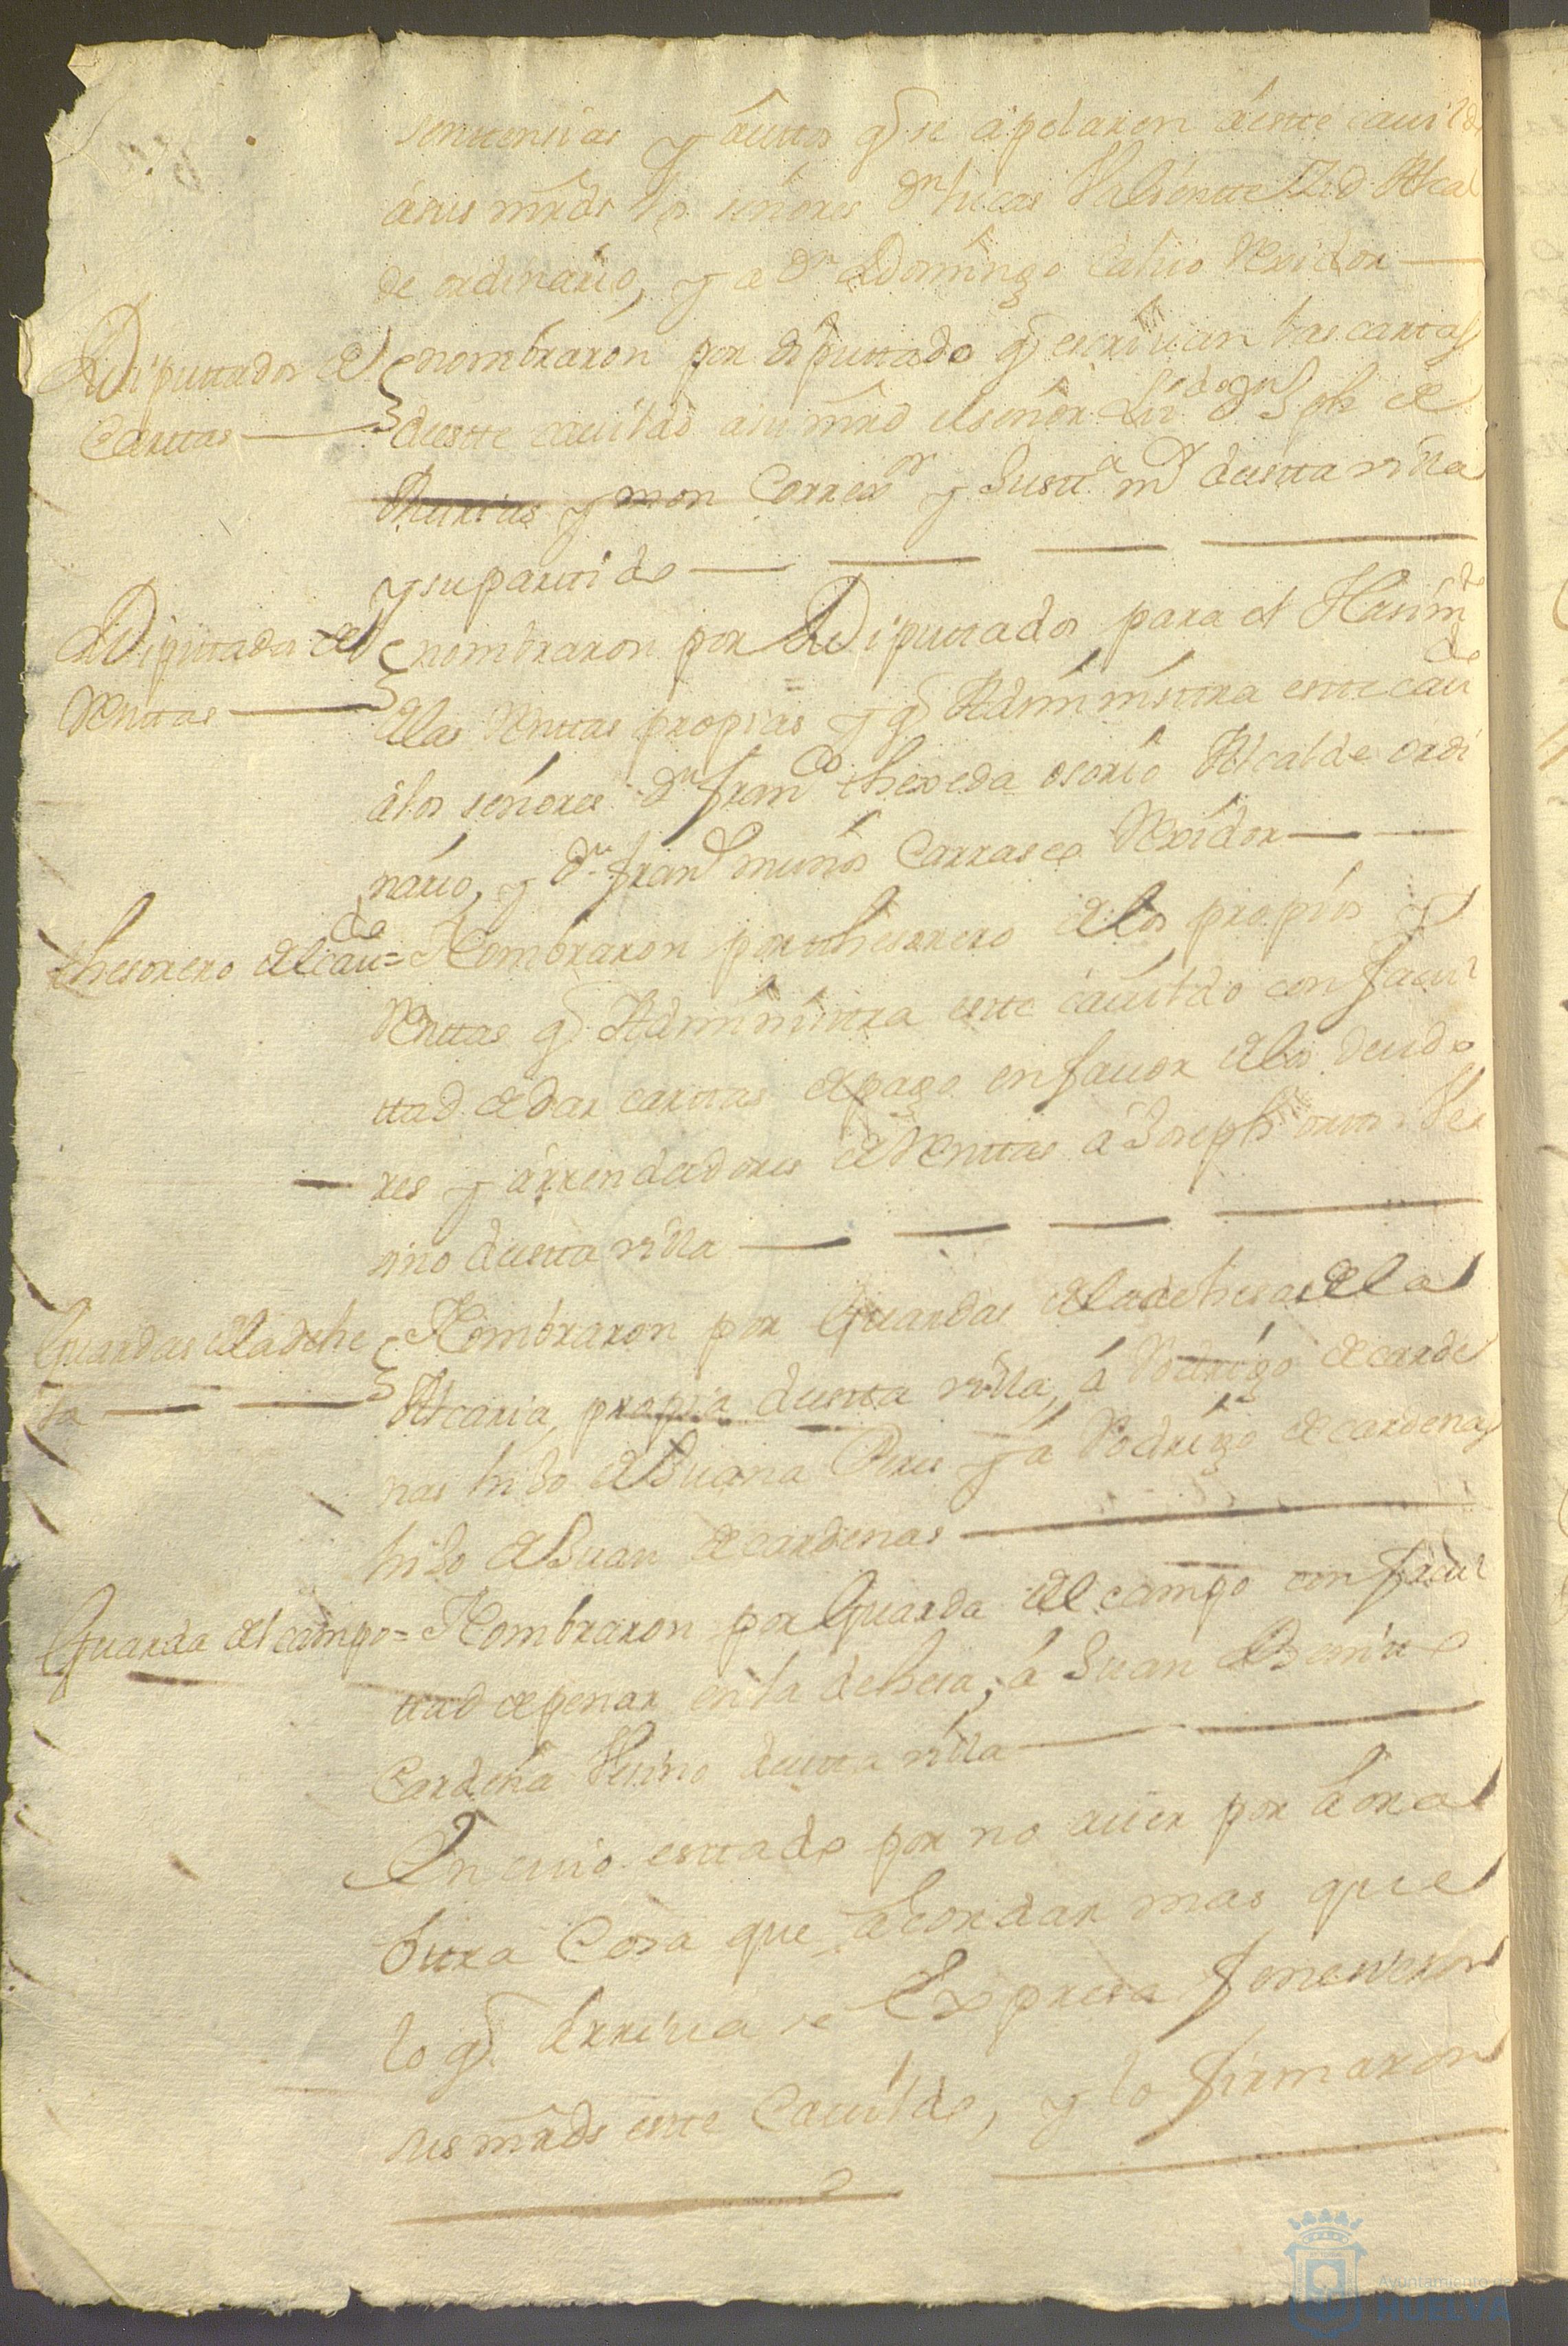 senttensias y auttos q se apelaren deste cauildo
á sus mrds los señores Dn lucas Valiente Alcal
de ordinario, y a Dn Domingo Caluo Rexidor
Diputtados de
Carttas
nombraron por diputtado q escriuan las carttas
deste cauildo a su mrd el señor Licdo Dn Joph de
y mon Correxor y Justta mr desta villa
y su parttido
Diputtados de
Renttas
nombraron por Diputtados para el Hasimto
de las Renttas propias = y q Administtra este cau do
á los señores Dn Franco thexeda osorio Alcalde ordi
nário, y Dn Franco muños Carrasco Rexidor
thesorero del caudo =
Nombraron por thesorero de los propios y
Renttas q Administtra este cauildo con facul
ttad de dar carttas de pago en fauor de los deudo
res y arrendadores de Renttas á Joseph ortis Ve
sino desta villa
Guardas de la dehe
sa
Nombraron por Guardas de la dehesa de la
Alcaria, propia desta villa, á Rodrigo de carde
nas hiJo de Juana Peres y á Rodrigo de cardenas
hiJo de Juan de cardenas
Guarda del campo =
Nombraron por Guarda del campo con facul
ttad de penar en la dehesa, á Juan Benitto
Cardeña Vesino desta villa
En cuio esttado por no auer por aora
Ottra Cosa que acordar mas que
lo q arriua se Expresa feneseieron
sus mrds este Cauildo, y lo firmaron
Ayuntamiento de
HUELVA